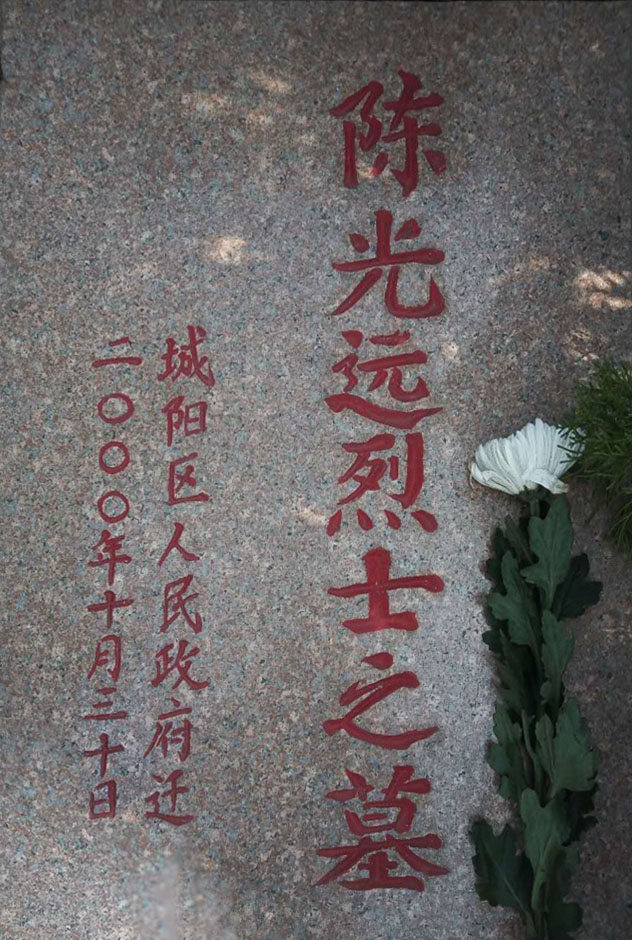 陈光远烈士之墓
城阳区人民政府迁
二〇〇〇年十月三十日